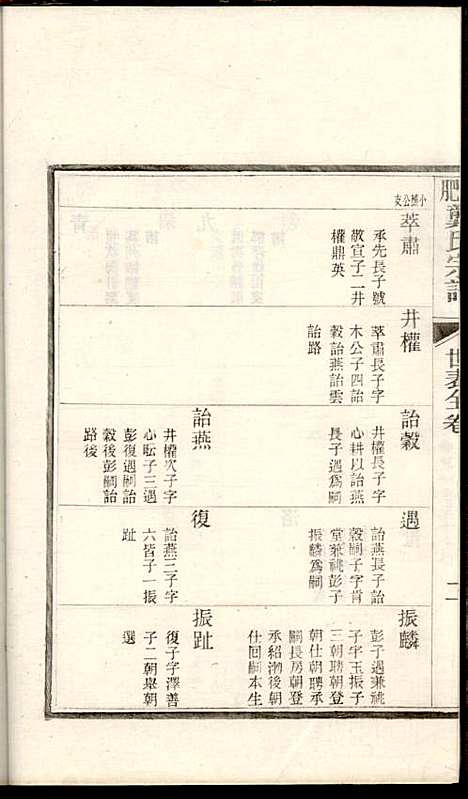 肥龔氏宗譜
世表全卷
小樓公支
莘肅
承先長子號
敬宣子二井
權鼎英
井權
莘肅長子字
木公子四詒
穀詒燕詒雲
詒路
詒穀
井權長子字
心耕以詒燕
長子遇為嗣
詒燕
井權次子字
心耘子三遇
彭復遇嗣詒
穀後彭嗣詒
路後
遇
詒燕長子詒
穀嗣子字肯
堂兼祧彭子
振麟為嗣
復
詒燕三子字
六皆子一振
趾
振麟
彭子遇兼祧
子字玉振子
三朝聘朝登
朝仕朝聘承
嗣長房朝登
承紹瀚後朝
仕回嗣本生
振趾
復子字澤善
子二朝舉朝
選